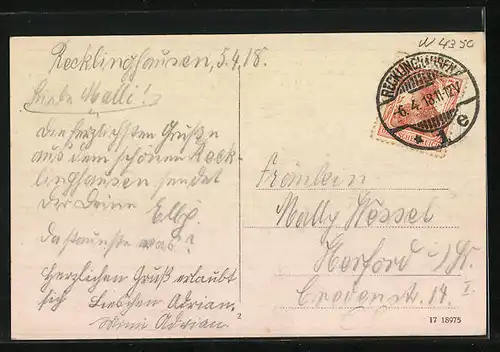 W 4350
Recklinghausen, 5.4.18.
Liebe Malli!
Die herzlichsten Grüße
aus dem schönen Reck-
linghausen sendet
Dir Deine
Da staunste was?
Herzlichen Gruß erlaubt
sich Lieschen Adrian.
Mimi Adrian.
RECKLINGHAUSEN
-6.4.18.11-12V
* 1 c
Fräulein
Mally Wessel
Herford i/W.
14 I.
17 18975